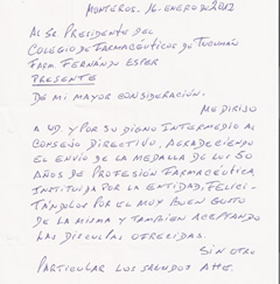 MONTEROS, 16 ENERO DE 2012
AL SR. PRESIDENTE DEL
COLEGIO DE FARMACÉUTICOS DE TUCUMÁN
FARM. FERNANDO ESPER
PRESENTE
DE MI MAYOR CONSIDERACIÓN.
ME DIRIJO
A UD. Y POR SU DIGNO INTERMEDIO AL
CONSEJO DIRECTIVO, AGRADECIENDO
EL ENVÍO DE LA MEDALLA DE LOS 50
AÑOS DE PROFESIÓN FARMACÉUTICA,
INSTITUIDA POR LA ENTIDAD, FELICI-
TÁNDOLOS POR EL MUY BUEN GUSTO
DE LA MISMA Y TAMBIEN ACEPTANDO
LAS DISCULPAS OFRECIDAS.
SIN OTRO
PARTICULAR LOS SALUDOS ATTE.